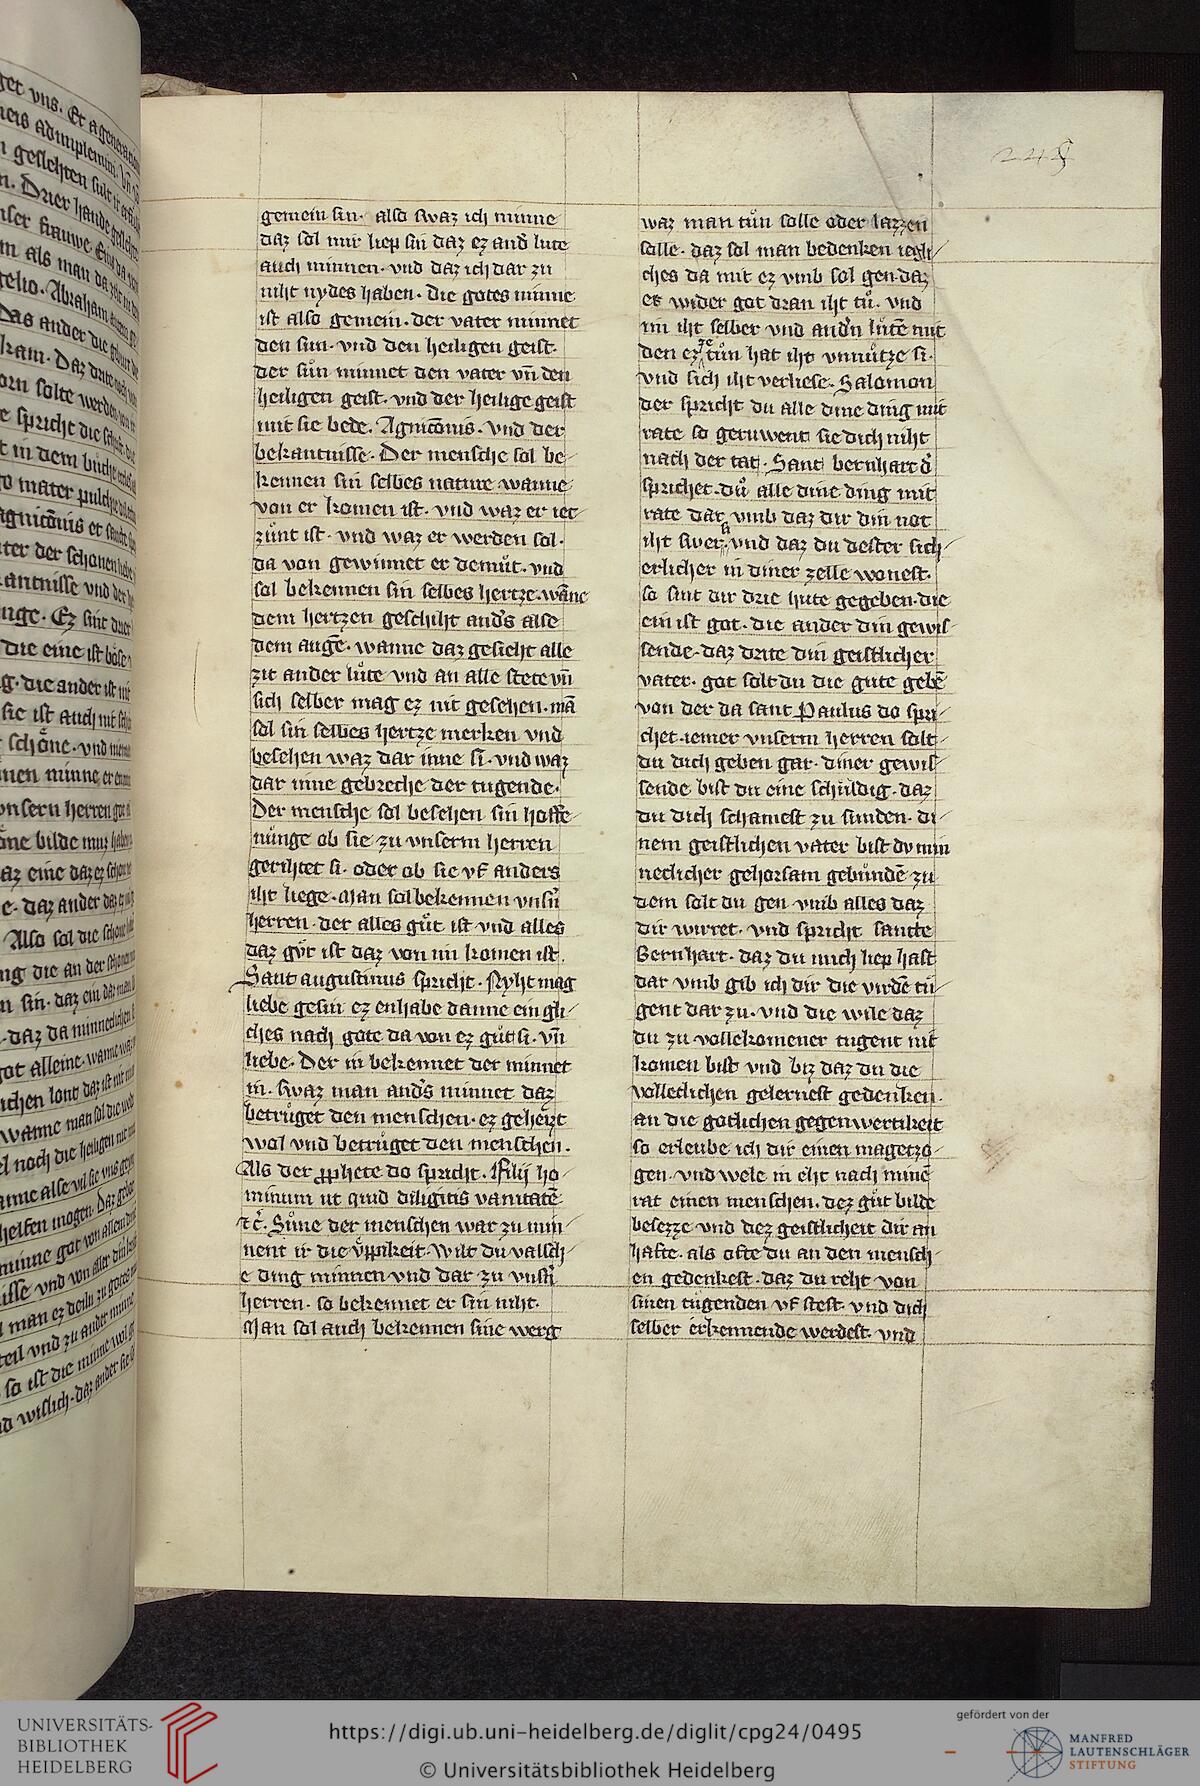 245
gemein sin· also swaz ich minne
daz sol mir liep sin daz ez and̾ lute
auch minnen· vnd daz ich dar zu
niht nydes haben· die gotes minne
ist also gemein· der vater minnet
den sun· vnd den heiligen geist·
der sůn minnet den vater vn̄ den
heiligen geist· vnd der heilige geist
mit sie bede· Agnicōnis· vnd der
bekantnisse· Der mensche sol be-
kennen sin selbes nature wanne
von er komen ist· vnd waz er iet
zůnt ist· vnd waz er werden sol·
da von gewinnet er demůt· vnd
sol bekennen sin selbes hertze· wāne
dem hertzen geschiht and̾s alse
dem augē· wanne daz gesicht alle
zit ander lůte vnd an alle stete vn̄
sich selber mag ez nit gesehen· mā
sol sin selbes hertze merken vnd
besehen waz dar inne si· vnd waz
dar inne gebreche der tugende·
Der mensche sol besehen sin hoffe-
nůnge ob sie zu vnserm herren
gerihtet si· oder ob sie vf anders
iht liege· Man sol bekennen vns̾n
herren· der alles gůt ist vnd alles
daz gůt ist daz von im komen ist·
Sant augustinus spricht· Nyht mag
liebe gesin ez enhabe danne ein gli-
ches nach gote da von ez gůt si· vn̄
liebe· Der in bekennet der minnet
in· swaz man and̾s minnet daz
betrůget den menschen· ez geheizt
wol vnd betrůget den menschen·
Als der ꝓphete do spricht· Filij ho-
minum ut quid diligitis vanitatē
⁊c̄· Sůne der menschen war zu min-
nent ir die v̊ppikeit· Wilt du valsch-
e ding minnen vnd dar zu vns̾n
herren· so bekennet er sin niht·
Man sol auch bekennen sine werg
waz man tůn solle oder lazzen
solle· daz sol man bedenken iegli-
ches da mit ez vmb sol gen· daz
er wider got dran iht tů· vnd
im iht selber vnd and̾n lůtē mit
den ez ze tůn hat iht vnnůtze si·
vnd sich iht verliese· Salomon
der spricht du alle dine ding mit
rate so geruwent sie dich niht
nach der tat· Sant bernhart d̾
sprichet· dů alle dine ding mit
rate dar vmb daz dir din not
iht swer· vnd daz du dester sich-
erlicher in diner zelle wonest·
so sint dir drie hute gegeben· die
ein ist got· die ander din gewis-
sende· daz drite din geistlicher
vater· got solt du die gute gebē
von der da sant Paulus do spri-
chet· iemer vnserm herren solt
du dich geben gar· diner gewis-
sende bist du eine schůldig· daz
du dich schamest zu sunden· di-
nem geistlichen vater bist dv min
neclicher gehorsam gebůndē zu
dem solt du gen vmb alles daz
dir wirret· vnd spricht sancte
Bernhart· daz du mich liep hast
dar vmb gib ich dir die virdē tů-
gent dar zu· vnd die wile daz
du zu vollekomener tugent nit
komen bist vnd biz daz du die
volleclichen gelernest gedenken·
an die gotlichen gegenwertikeit
so erleube ich dir einen magetzo-
gen· vnd wele in eht nach minē
rat einen menschen· dez gůt bilde
besezze vnd dez geistlicheit dir an
hafte· als ofte du an den mensch-
en gedenkest· daz du reht von
sinen tůgenden vf stest· vnd dich
selber erkennende werdest· vnd
UNIVERSITÄTS-
BIBLIOTHEK
HEIDELBERG
https://digi.ub.uni-heidelberg.de/diglit/cpg24/0495
© Universitätsbibliothek Heidelberg
gefördert von der
MANFRED
LAUTENSCHLÄGER
STIFTUNG